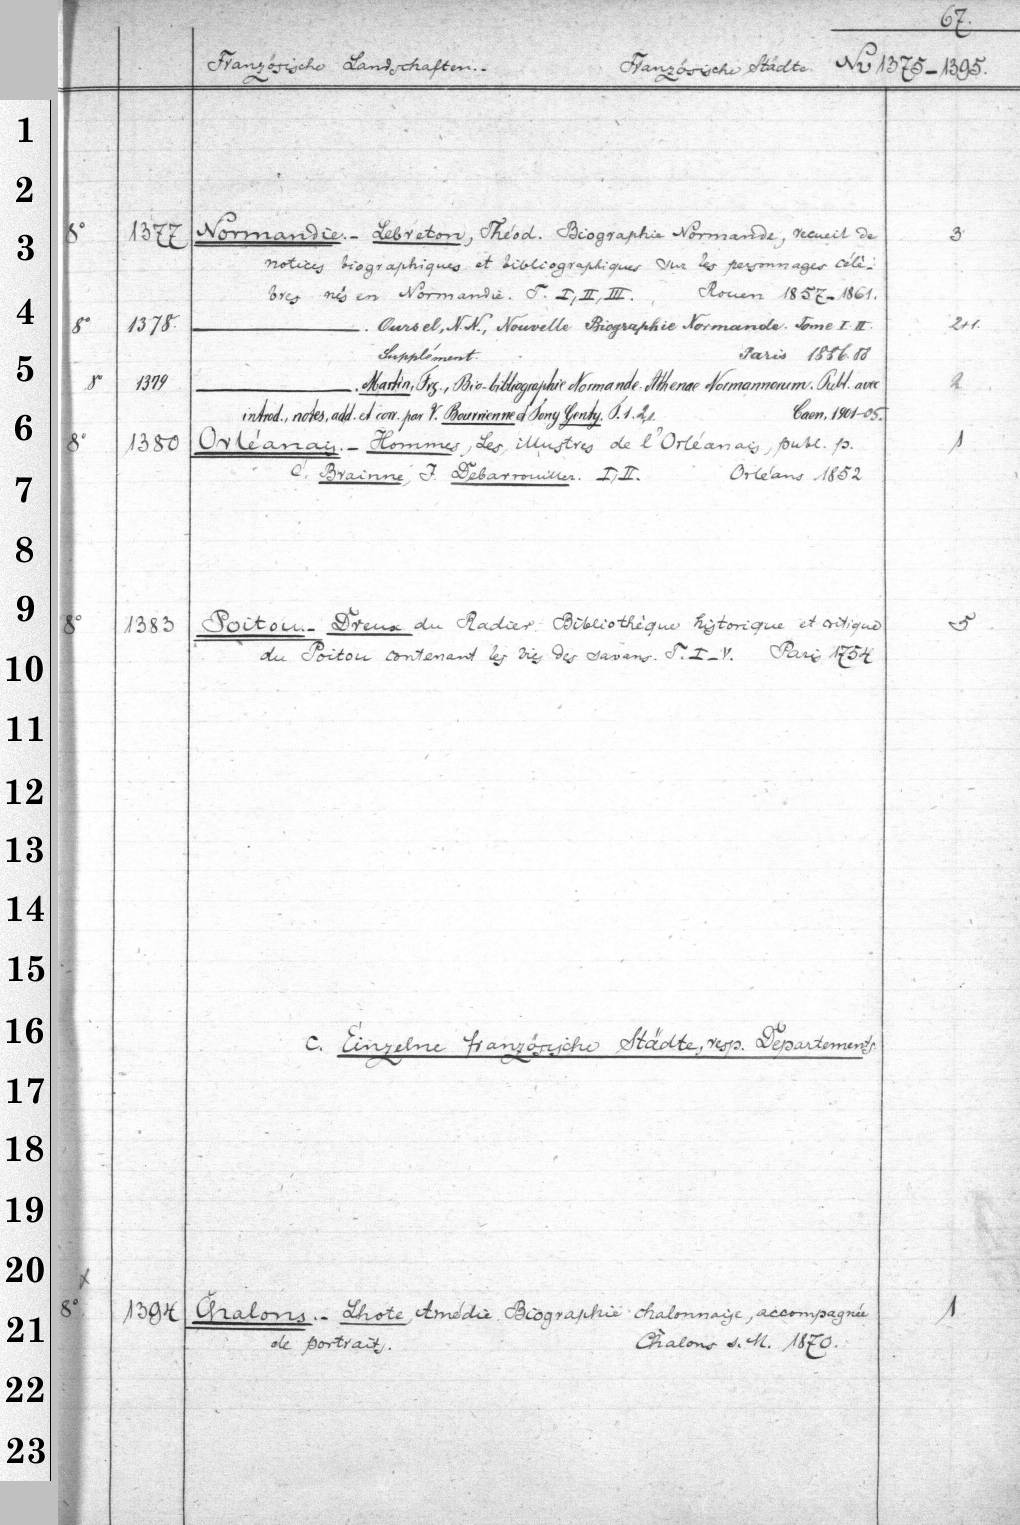 67.
Französische Landschaften.- Französische Städte. No 1375-1395.
1
2
3
8° 1377 Normandie.- Lebreton, Théod. Biographie Normande, recueil de 3
notices biographiques et bibliographiques sur les personnages célè-
bres nés en Normandie. T. I, II, III. Rouen 1857-1861.
4
8° 1378. ———. Oursel, N.N., Nouvelle Biographie Normande. Tome I. II. 2+1.
Supplément. Paris 1886.88
5
8° 1379 ———. Martin, Frç., Bio-bibliographie Normande. Athenae Normannorum. Publ. avec 2
introd., notes, add. et corr. par V. Bourrienne et Tony Genty. T. 1. 2. Caen, 1901-05.
6
8° 1380 Orléanais.- Hommes, Les, illustres de l'Orléanais, publ. p. 1
7
C. Brainne, J. Debarrouiller. I, II. Orléans 1852
8
9
8° 1383 Poitou.- Dreux du Radier. Bibliothèque historique et critique 5
10
du Poitou contenant les vies des savans. T. I-V. Paris 1754
11
12
13
14
15
16
C. Einzelne französische Städte, resp. Departements.
17
18
19
20
x
8° 1394 Chalons.- Lhote, Amédie Biographie chalonnaise, accompagnée 1
21
de portraits. Chalons s. M. 1870.
22
23